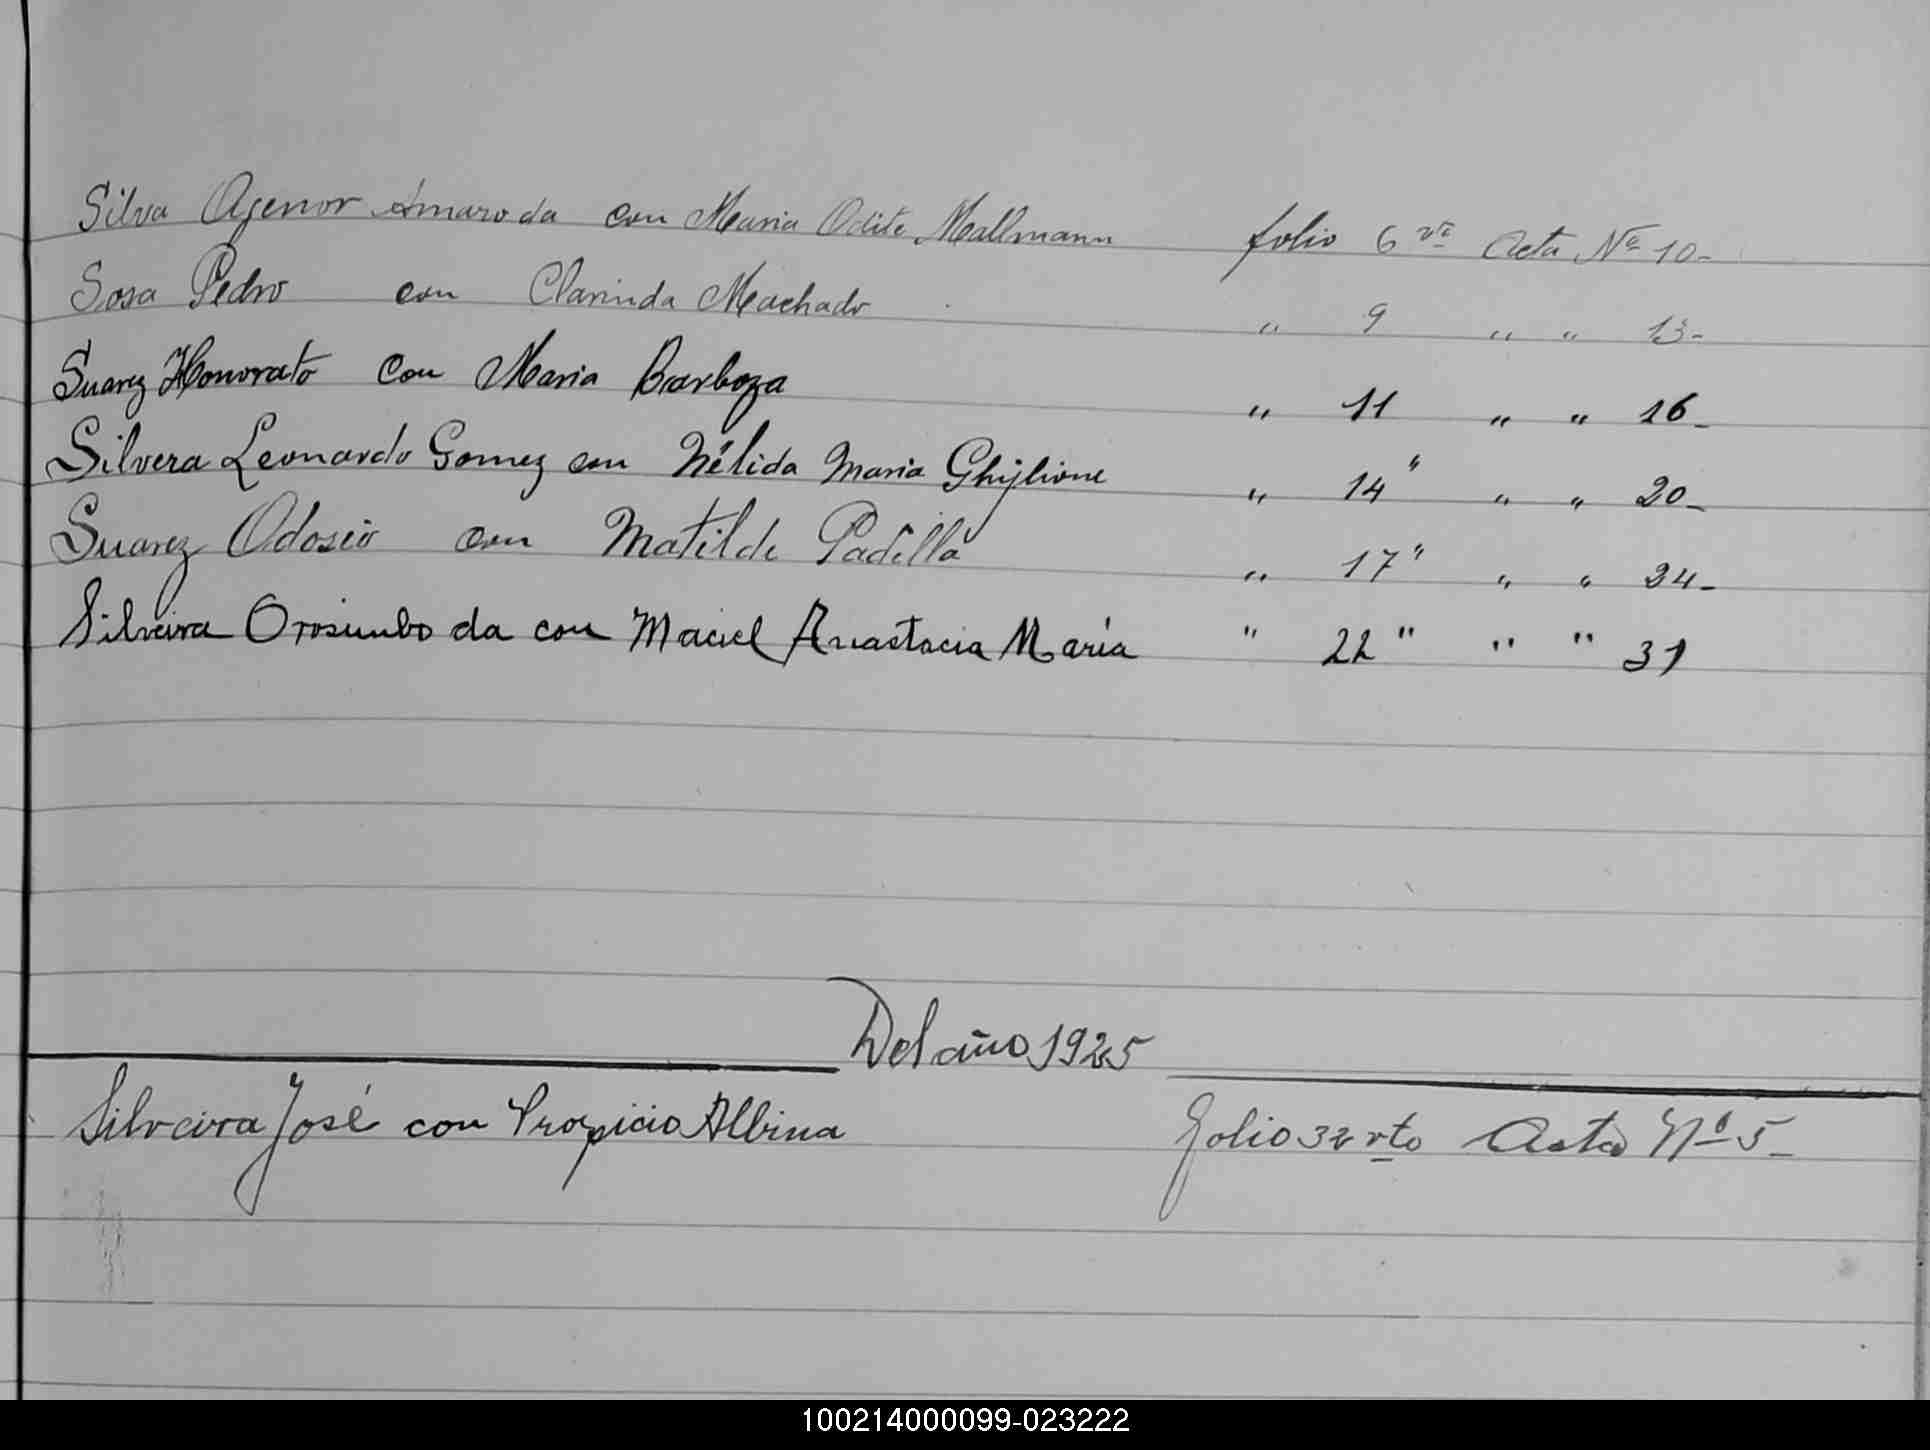 Silva Agenor Amaro da con Maria Odite Mallmann folio 6 vto Acta Nº 10-
Sosa Pedro con Clarinda Machado " 9 " " 13-
Suarez Honorato con Maria Barboza " 11 " " 16-
Silvera Leonardo Gomez con Nélida Maria Ghiglione " 14 " " " 20-
Suarez Odosio con Matilde Padilla " 17 " " " 24-
Silveira Orosimbo da con Maciel Anastacia María " 22 " " " 31
Del año 1925
Silveira José con Propicio Albina folio 32 vto Acta Nº 5-
100214000099-023222